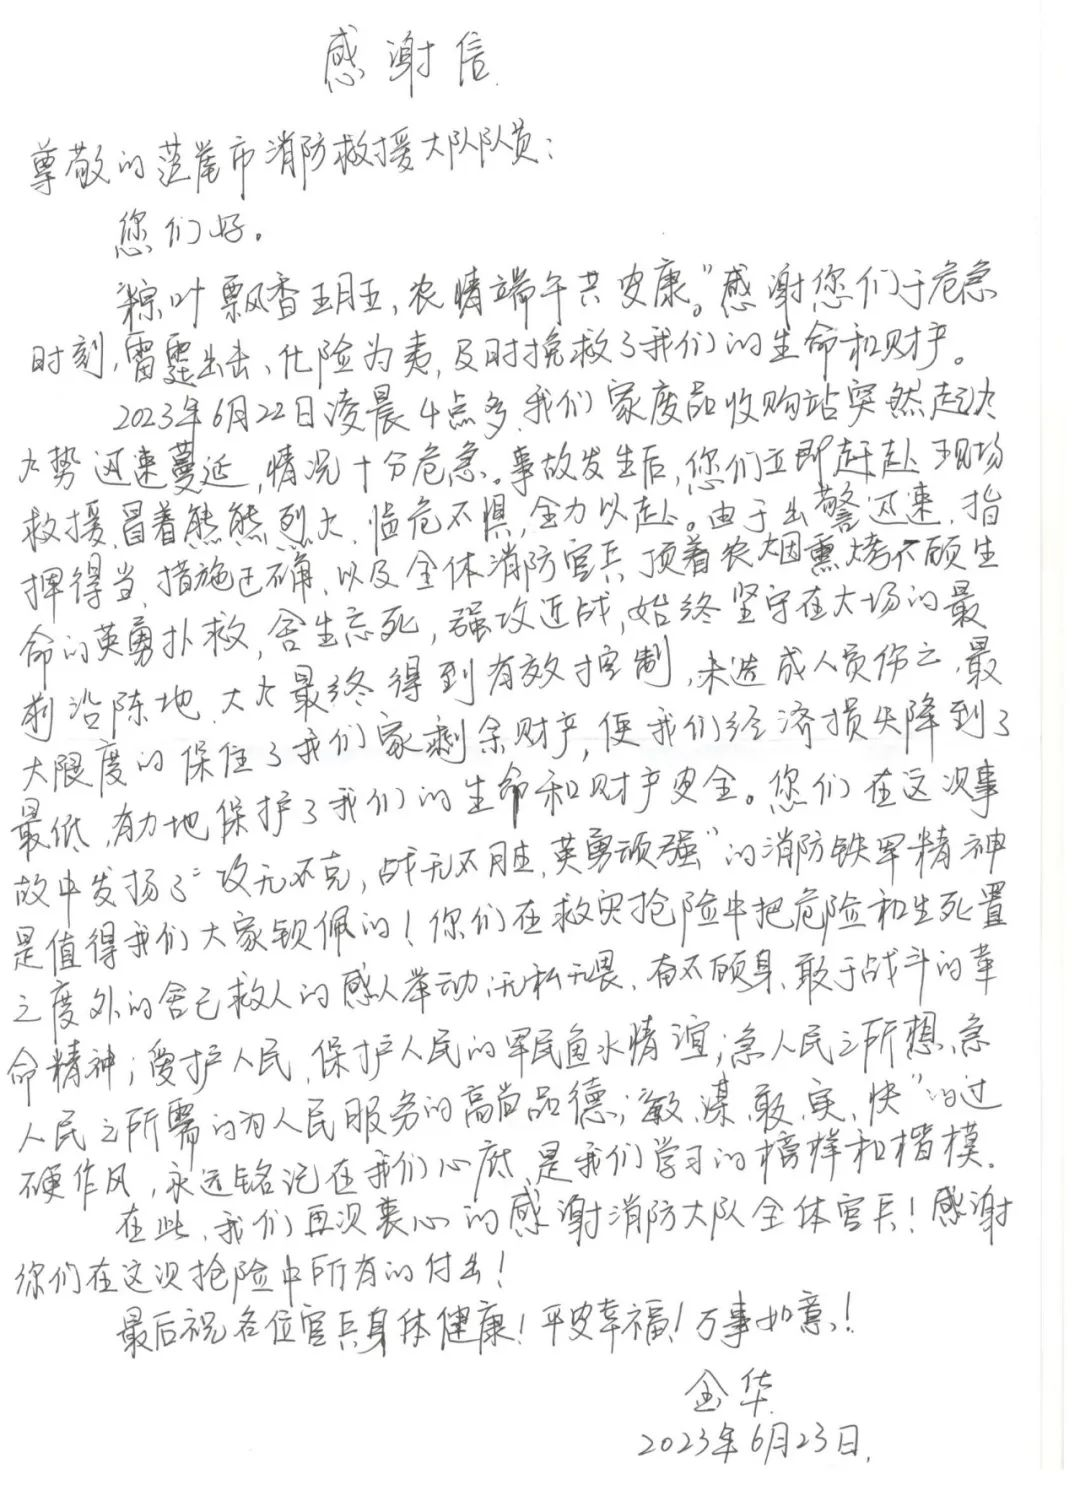 感谢信
尊敬的范崖市消防救援大队队员：
您们好。
粽叶飘香五月五，农情端午共安康。”感谢您们于危急
时刻，雷霆出击、化险为夷，及时挽救了我们的生命和财产。
2023年6月22日凌晨4点多，我们家废品收购站突然起火
火势迅速蔓延，情况十分危急。事故发生后，您们立即赶赴现场
救援，冒着熊熊烈火，临危不惧，全力以赴。由于出警迅速，指
挥得当，措施正确，以及全体消防官兵顶着农烟熏烤不顾生
命的英勇扑救，舍生忘死，强攻近战，始终坚守在大场的最
前沿阵地、大火最终得到有效控制，未造成人员伤亡，最
大限度的保住了我们家剩余财产，使我们经济损失降到了
最低，有力地保护了我们的生命和财产安全。您们在这次事
故中发扬了“攻无不克，战无不胜，英勇顽强”的消防铁军精神
是值得我们大家钦佩的！你们在救灾抢险中把危险和生死置
之度外的舍己救人的感人举动；无私无畏、奋不顾身、敢于战斗的革
命精神；爱护人民，保护人民的军民鱼水情谊；急人民之所想、急
人民之所需的为人民服务的高尚品德；敏、谋、敢、实、快”的过
硬作风，永远铭记在我们心底，是我们学习的榜样和楷模。
在此，我们再次衷心的感谢消防大队全体官兵！感谢
你们在这次抢险中所有的付出！
最后祝各位官兵身体健康！平安幸福！万事如意！
金华
2023年6月23日.